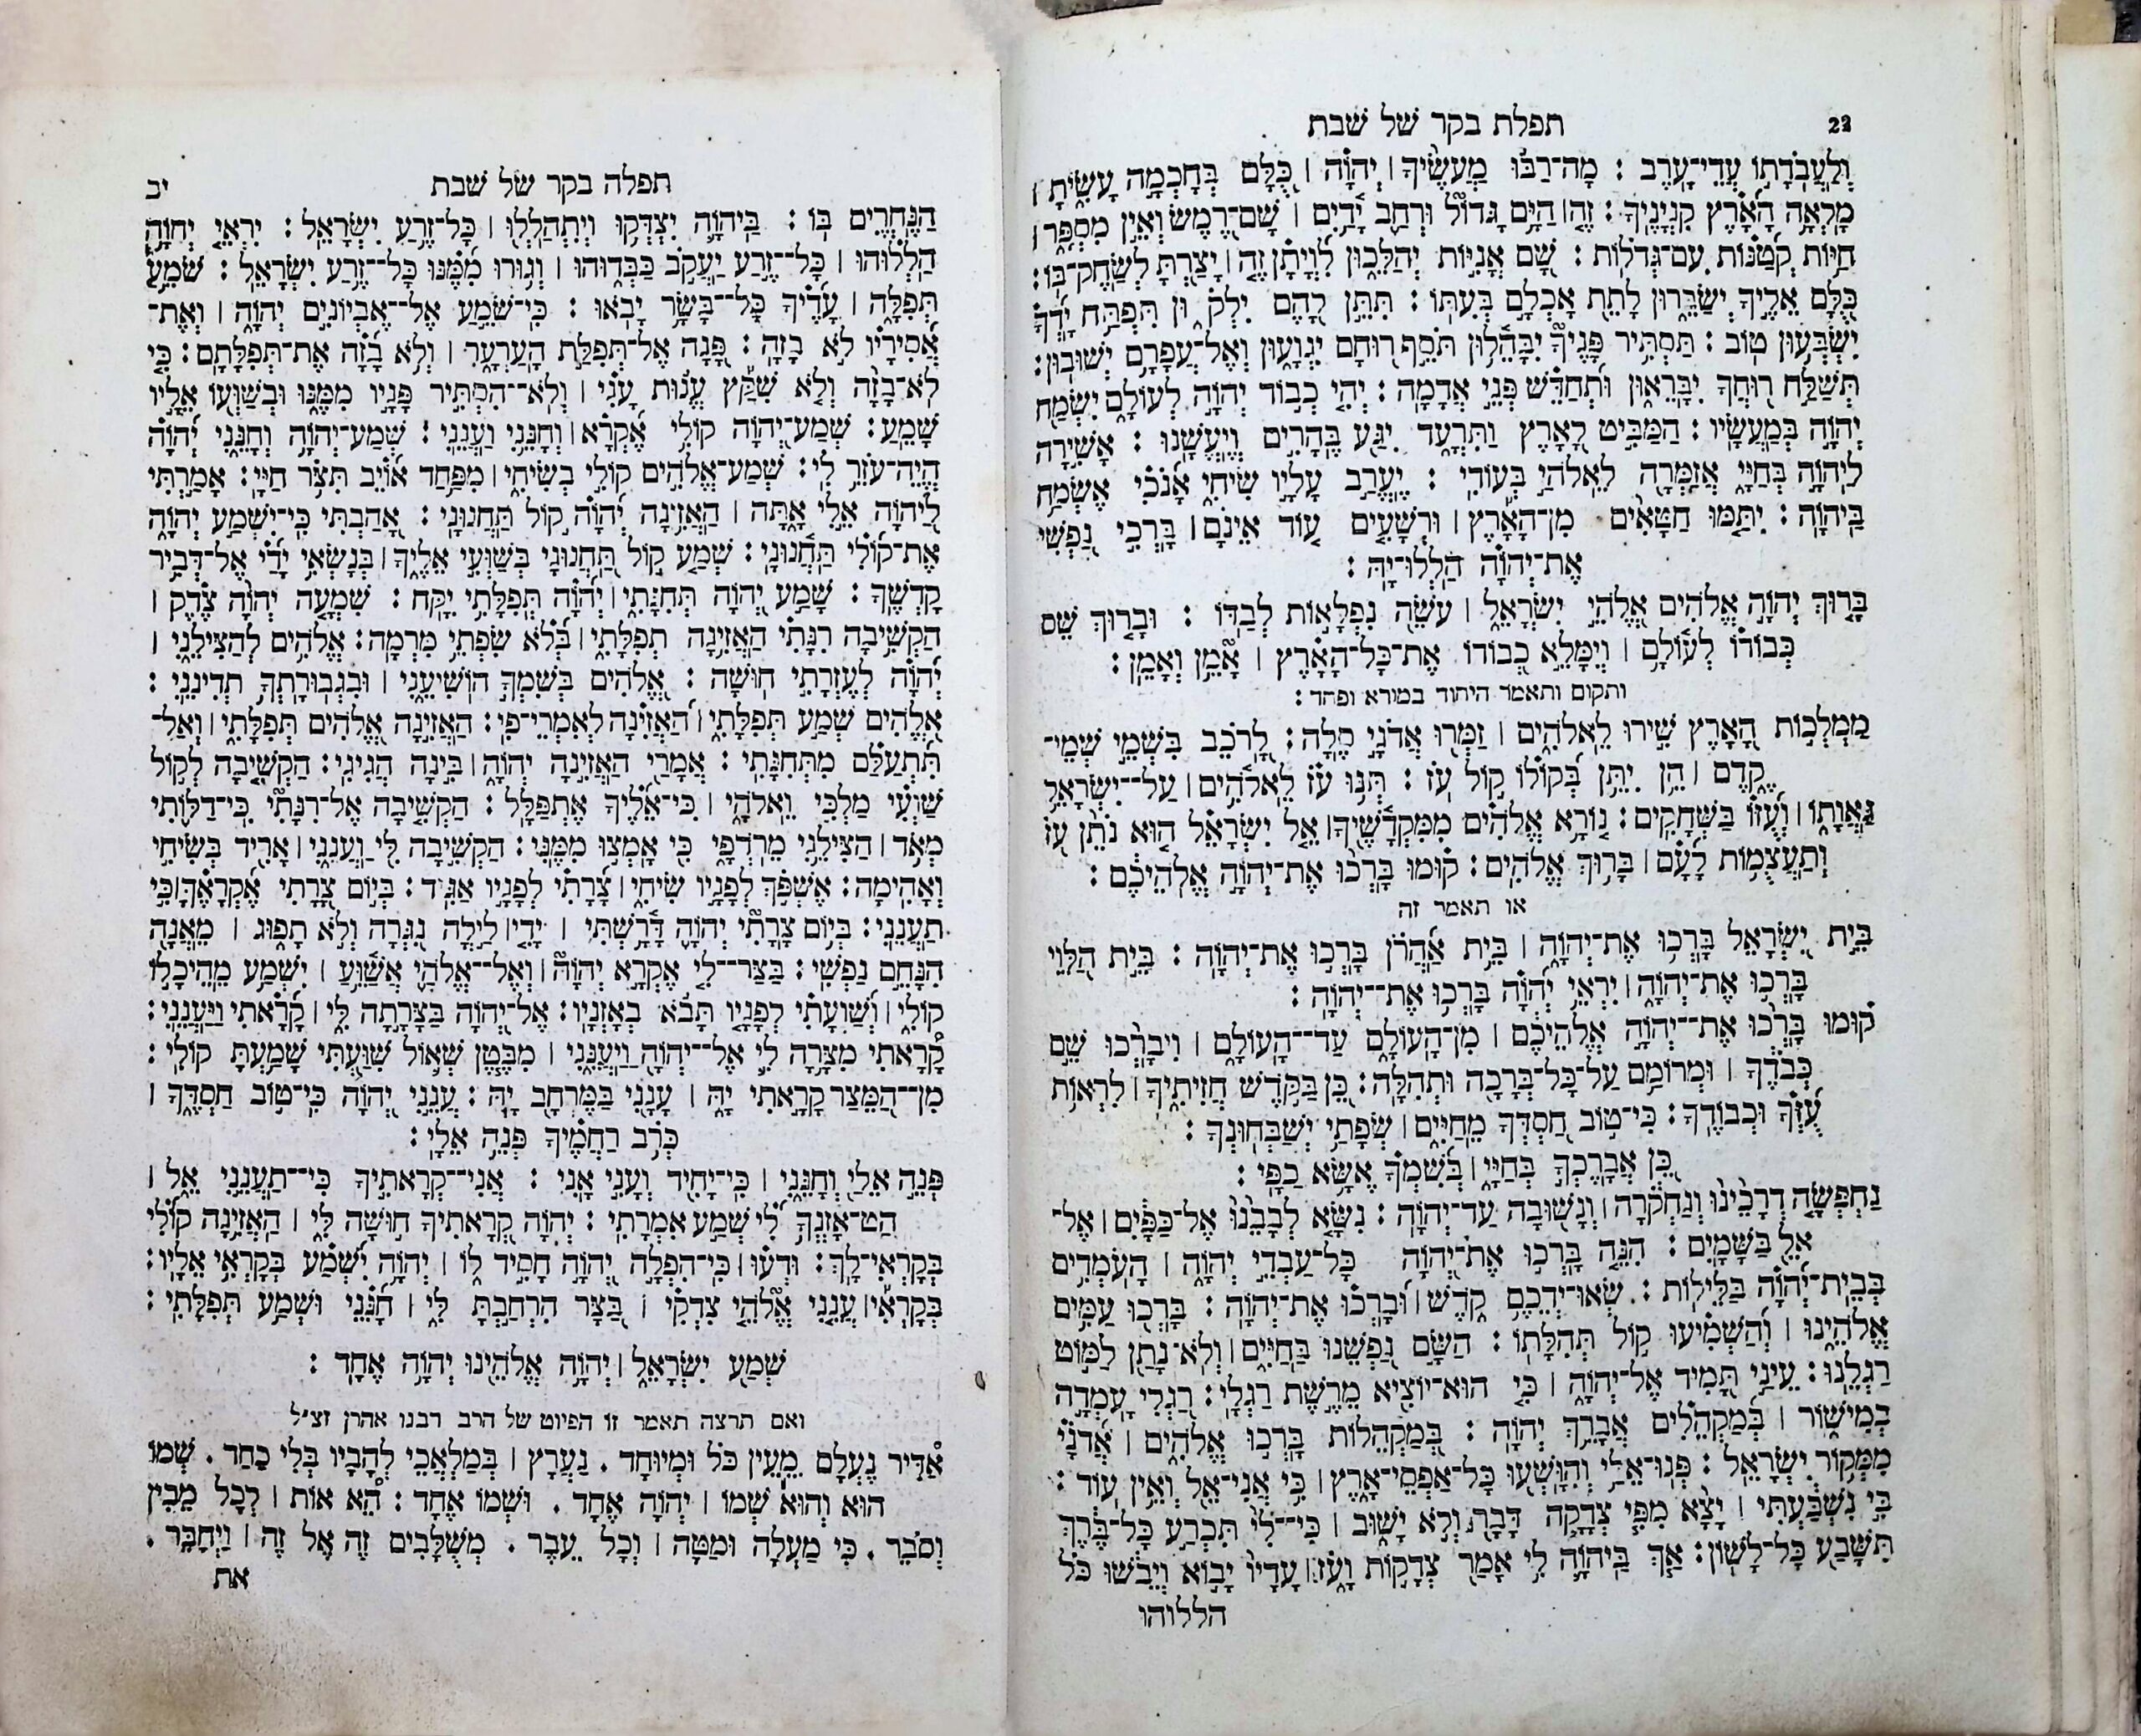 22
תפלת בקר של שבת
וְלַעֲבֹדָתוֹ עֲדֵי־עָרֶב : מָה־רַבּוּ מַעֲשֶׂיךָ ׀ יְהוָֹה ׀ כֻּלָּם בְּחָכְמָה עָשִׂיתָ ׀
מָלְאָה הָאָרֶץ קִנְיָנֶיךָ : זֶה ׀ הַיָּם גָּדוֹל וּרְחַב יָדָיִם ׀ שָׁם־רֶמֶשׂ וְאֵין מִסְפָּר ׀
חַיּוֹת קְטַנּוֹת עִם־גְּדֹלוֹת : שָׁם אֳנִיּוֹת יְהַלֵּכוּן לִוְיָתָן זֶה ׀ יָצַרְתָּ לְשַׂחֶק־בּוֹ :
כֻּלָּם אֵלֶיךָ יְשַׂבֵּרוּן לָתֵת אָכְלָם בְּעִתּוֹ : תִּתֵּן לָהֶם יִלְקֹטוּן תִּפְתַּח יָדְךָ
יִשְׂבְּעוּן טוֹב : תַּסְתִּיר פָּנֶיךָ יִבָּהֵלוּן תֹּסֵף רוּחָם יִגְוָעוּן וְאֶל־עֲפָרָם יְשׁוּבוּן :
תְּשַׁלַּח רוּחֲךָ יִבָּרֵאוּן וּתְחַדֵּשׁ פְּנֵי אֲדָמָה : יְהִי כְבוֹד יְהוָֹה לְעוֹלָם יִשְׂמַח
יְהוָֹה בְּמַעֲשָׂיו : הַמַּבִּיט לָאָרֶץ וַתִּרְעָד יִגַּע בֶּהָרִים וְיֶעֱשָׁנוּ : אָשִׁירָה
לַיהוָֹה בְּחַיָּי אֲזַמְּרָה לֵאלֹהַי בְּעוֹדִי : יֶעֱרַב עָלָיו שִׂיחִי אָנֹכִי אֶשְׂמַח
בַּיהוָֹה : יִתַּמּוּ חַטָּאִים מִן־הָאָרֶץ ׀ וּרְשָׁעִים עוֹד אֵינָם ׀ בָּרְכִי נַפְשִׁי
אֶת־יְהוָֹה הַלְלוּ־יָהּ :
בָּרוּךְ יְהוָֹה אֱלֹהִים אֱלֹהֵי יִשְׂרָאֵל ׀ עֹשֵׂה נִפְלָאוֹת לְבַדּוֹ : וּבָרוּךְ שֵׁם
כְּבוֹדוֹ לְעוֹלָם ׀ וְיִמָּלֵא כְבוֹדוֹ אֶת־כָּל־הָאָרֶץ ׀ אָמֵן וְאָמֵן :
ותקום ותאמר היחוד במורא ופחד :
מַמְלְכוֹת הָאָרֶץ שִׁירוּ לֵאלֹהִים ׀ זַמְּרוּ אֲדֹנָי סֶלָה : לָרֹכֵב בִּשְׁמֵי שְׁמֵי־
קֶדֶם ׀ הֵן יִתֵּן בְּקוֹלוֹ קוֹל עֹז : תְּנוּ עֹז לֵאלֹהִים ׀ עַל־יִשְׂרָאֵל
גַּאֲוָתוֹ ׀ וְעֻזּוֹ בַּשְּׁחָקִים : נוֹרָא אֱלֹהִים מִמִּקְדָּשֶׁיךָ ׀ אֵל יִשְׂרָאֵל הוּא נֹתֵן עֹז
וְתַעֲצֻמוֹת לָעָם ׀ בָּרוּךְ אֱלֹהִים : קוּמוּ בָּרְכוּ אֶת־יְהוָֹה אֱלֹהֵיכֶם :
או תאמר זה
בֵּית יִשְׂרָאֵל בָּרְכוּ אֶת־יְהוָֹה ׀ בֵּית אַהֲרֹן בָּרְכוּ אֶת־יְהוָֹה : בֵּית הַלֵּוִי
בָּרְכוּ אֶת־יְהוָֹה ׀ יִרְאֵי יְהוָֹה בָּרְכוּ אֶת־יְהוָֹה :
קוּמוּ בָּרְכוּ אֶת־יְהוָֹה אֱלֹהֵיכֶם ׀ מִן־הָעוֹלָם עַד־הָעוֹלָם ׀ וִיבָרְכוּ שֵׁם
כְּבֹדֶךָ ׀ וּמְרוֹמַם עַל־כָּל־בְּרָכָה וּתְהִלָּה : כֵּן בַּקֹּדֶשׁ חֲזִיתִיךָ ׀ לִרְאוֹת
עֻזְּךָ וּכְבוֹדֶךָ : כִּי־טוֹב חַסְדְּךָ מֵחַיִּים ׀ שְׂפָתַי יְשַׁבְּחוּנְךָ :
כֵּן אֲבָרֶכְךָ בְחַיָּי ׀ בְּשִׁמְךָ אֶשָּׂא כַפָּי :
נַחְפְּשָׂה דְרָכֵינוּ וְנַחְקֹרָה ׀ וְנָשׁוּבָה עַד־יְהוָֹה : נִשָּׂא לְבָבֵנוּ אֶל־כַּפָּיִם ׀ אֶל־
אֵל בַּשָּׁמָיִם : הִנֵּה בָּרְכוּ אֶת־יְהוָֹה כָּל־עַבְדֵי יְהוָֹה ׀ הָעֹמְדִים
בְּבֵית־יְהוָֹה בַּלֵּילוֹת : שְׂאוּ־יְדֵכֶם קֹדֶשׁ ׀ וּבָרְכוּ אֶת־יְהוָֹה : בָּרְכוּ עַמִּים
אֱלֹהֵינוּ ׀ וְהַשְׁמִיעוּ קוֹל תְּהִלָּתוֹ : הַשָּׂם נַפְשֵׁנוּ בַּחַיִּים ׀ וְלֹא־נָתַן לַמּוֹט
רַגְלֵנוּ : עֵינַי תָּמִיד אֶל־יְהוָֹה ׀ כִּי הוּא־יוֹצִיא מֵרֶשֶׁת רַגְלָי : רַגְלִי עָמְדָה
בְמִישׁוֹר ׀ בְּמַקְהֵלִים אֲבָרֵךְ יְהוָֹה : בְּמַקְהֵלוֹת בָּרְכוּ אֱלֹהִים ׀ אֲדֹנָי
מִמְּקוֹר יִשְׂרָאֵל : פְּנוּ־אֵלַי וְהִוָּשְׁעוּ כָּל־אַפְסֵי־אָרֶץ ׀ כִּי אֲנִי־אֵל וְאֵין עוֹד :
בִּי נִשְׁבַּעְתִּי ׀ יָצָא מִפִּי צְדָקָה דָּבָר וְלֹא יָשׁוּב ׀ כִּי־לִי תִּכְרַע כָּל־בֶּרֶךְ
תִּשָּׁבַע כָּל־לָשׁוֹן : אַךְ בַּיהוָֹה לִי אָמַר צְדָקוֹת וָעֹז ׀ עָדָיו יָבוֹא וְיֵבֹשׁוּ כֹּל
הללוהו
תפלה בקר של שבת
יב
הַנֶּחֱרִים בּוֹ : בַּיהוָֹה יִצְדְּקוּ וְיִתְהַלְלוּ ׀ כָּל־זֶרַע יִשְׂרָאֵל : יִרְאֵי יְהוָֹה
הַלְלוּהוּ ׀ כָּל־זֶרַע יַעֲקֹב כַּבְּדוּהוּ ׀ וְגוּרוּ מִמֶּנּוּ כָּל־זֶרַע יִשְׂרָאֵל : שֹׁמֵעַ
תְּפִלָּה ׀ עָדֶיךָ כָּל־בָּשָׂר יָבֹאוּ : כִּי־שֹׁמֵעַ אֶל־אֶבְיוֹנִים יְהוָֹה ׀ וְאֶת־
אֲסִירָיו לֹא בָזָה : פָּנָה אֶל־תְּפִלַּת הָעַרְעָר ׀ וְלֹא בָזָה אֶת־תְּפִלָּתָם : כִּי
לֹא־בָזָה וְלֹא שִׁקַּץ עֱנוּת עָנִי ׀ וְלֹא־הִסְתִּיר פָּנָיו מִמֶּנּוּ וּבְשַׁוְּעוֹ אֵלָיו
שָׁמֵעַ : שְׁמַע־יְהוָֹה קוֹלִי אֶקְרָא ׀ וְחָנֵּנִי וַעֲנֵנִי : שְׁמַע־יְהוָֹה וְחָנֵּנִי יְהוָֹה
הֱיֵה־עֹזֵר לִי : שְׁמַע־אֱלֹהִים קוֹלִי בְשִׂיחִי ׀ מִפַּחַד אוֹיֵב תִּצֹּר חַיָּי : אָמַרְתִּי
לַיהוָֹה אֵלִי אָתָּה ׀ הַאֲזִינָה יְהוָֹה קוֹל תַּחֲנוּנָי : אָהַבְתִּי כִּי־יִשְׁמַע יְהוָֹה
אֶת־קוֹלִי תַּחֲנוּנָי : שְׁמַע קוֹל תַּחֲנוּנַי בְּשַׁוְּעִי אֵלֶיךָ ׀ בְּנָשְׂאִי יָדַי אֶל־דְּבִיר
קָדְשֶׁךָ : שָׁמַע יְהוָֹה תְּחִנָּתִי ׀ יְהוָֹה תְּפִלָּתִי יִקָּח : שִׁמְעָה יְהוָֹה צֶדֶק ׀
הַקְשִׁיבָה רִנָּתִי הַאֲזִינָה תְפִלָּתִי ׀ בְּלֹא שִׂפְתֵי מִרְמָה : אֱלֹהִים לְהַצִּילֵנִי ׀
יְהוָֹה לְעֶזְרָתִי חוּשָׁה : אֱלֹהִים בְּשִׁמְךָ הוֹשִׁיעֵנִי ׀ וּבִגְבוּרָתְךָ תְדִינֵנִי :
אֱלֹהִים שְׁמַע תְּפִלָּתִי ׀ הַאֲזִינָה לְאִמְרֵי־פִי : הַאֲזִינָה אֱלֹהִים תְּפִלָּתִי ׀ וְאַל־
תִּתְעַלַּם מִתְּחִנָּתִי : אֲמָרַי הַאֲזִינָה יְהוָֹה ׀ בִּינָה הֲגִיגִי : הַקְשִׁיבָה לְקוֹל
שַׁוְעִי מַלְכִּי וֵאלֹהָי ׀ כִּי־אֵלֶיךָ אֶתְפַּלָּל : הַקְשִׁיבָה אֶל־רִנָּתִי כִּי־דַלּוֹתִי
מְאֹד ׀ הַצִּילֵנִי מֵרֹדְפַי כִּי אָמְצוּ מִמֶּנִּי : הַקְשִׁיבָה לִּי וַעֲנֵנִי ׀ אָרִיד בְּשִׂיחִי
וְאָהִימָה : אֶשְׁפֹּךְ לְפָנָיו שִׂיחִי ׀ צָרָתִי לְפָנָיו אַגִּיד : בְּיוֹם צָרָתִי אֶקְרָאֶךָּ ׀ כִּי
תַעֲנֵנִי : בְּיוֹם צָרָתִי יְהוָֹה דָּרָשְׁתִּי ׀ יָדִי ׀ לַיְלָה נִגְּרָה וְלֹא תָפוּג ׀ מֵאֲנָה
הִנָּחֵם נַפְשִׁי : בַּצַּר־לִי אֶקְרָא יְהוָֹה ׀ וְאֶל־אֱלֹהַי אֲשַׁוֵּעַ ׀ יִשְׁמַע מֵהֵיכָלוֹ
קוֹלִי ׀ וְשַׁוְעָתִי לְפָנָיו תָּבֹא בְאָזְנָיו : אֶל־יְהוָֹה בַּצָּרָתָה לִּי ׀ קָרָאתִי וַיַּעֲנֵנִי :
קָרָאתִי מִצָּרָה לִי אֶל־יְהוָֹה וַיַּעֲנֵנִי ׀ מִבֶּטֶן שְׁאוֹל שִׁוַּעְתִּי שָׁמַעְתָּ קוֹלִי :
מִן־הַמֵּצַר קָרָאתִי יָהּ ׀ עָנָנִי בַמֶּרְחָב יָהּ : עֲנֵנִי יְהוָֹה כִּי־טוֹב חַסְדֶּךָ ׀
כְּרֹב רַחֲמֶיךָ פְּנֵה אֵלָי :
פְּנֵה אֵלַי וְחָנֵּנִי ׀ כִּי־יָחִיד וְעָנִי אָנִי : אֲנִי־קְרָאתִיךָ כִּי־תַעֲנֵנִי אֵל ׀
הַט־אָזְנְךָ לִי שְׁמַע אִמְרָתִי : יְהוָֹה קְרָאתִיךָ חוּשָׁה לִּי ׀ הַאֲזִינָה קוֹלִי
בְּקָרְאִי־לָךְ : וּדְעוּ ׀ כִּי־הִפְלָה יְהוָֹה חָסִיד לוֹ ׀ יְהוָֹה יִשְׁמַע בְּקָרְאִי אֵלָיו :
בְּקָרְאִי ׀ עֲנֵנִי אֱלֹהֵי צִדְקִי ׀ בַּצָּר הִרְחַבְתָּ לִּי ׀ חָנֵּנִי וּשְׁמַע תְּפִלָּתִי :
שְׁמַע יִשְׂרָאֵל ׀ יְהוָֹה אֱלֹהֵינוּ יְהוָֹה אֶחָד :
ואם תרצה תאמר זו הפיוט של הרב רבנו אהרן זצ״ל
אַדִּיר נֶעְלָם מֵעֵין כֹּל וּמְיוּחָד . נַעֲרָץ ׀ בְּמַלְאֲכֵי לְהָבָיו בְּלִי כַחַד . שְׁמוֹ
הוּא וְהוּא שְׁמוֹ ׀ יְהוָֹה אֶחָד . וּשְׁמוֹ אֶחָד : הֵא אוֹת ׀ לְכָל מֵבִין
וְסֹבֵר . כִּי מַעְלָה וּמַטָּה ׀ וְכָל עֵבֶר . מְשֻׁלָּבִים זֶה אֶל זֶה ׀ וַיְחַבֵּר .
את